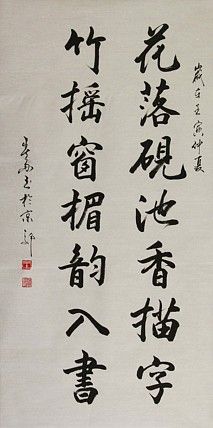 歲在壬寅仲夏
花落硯池香描字
竹摇窗楣韵入書
書於京郊